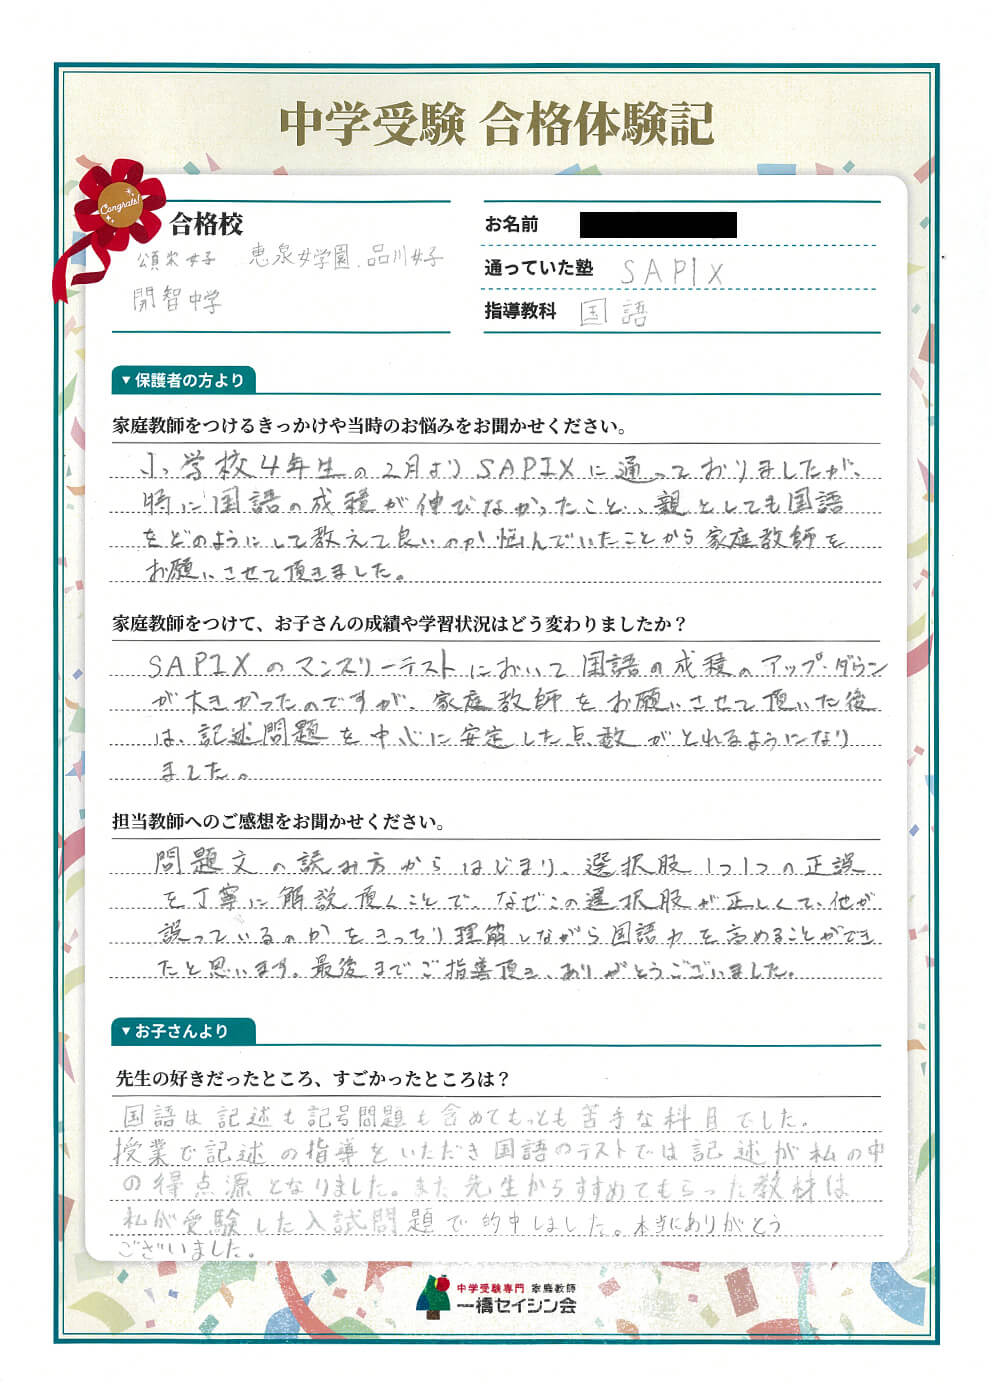 中学受験 合格体験記
Congrats!
合格校
頌栄女子 恵泉女学園、品川女子
開智中学
お名前
通っていた塾 SAPIX
指導教科 国語
▼保護者の方より
家庭教師をつけるきっかけや当時のお悩みをお聞かせください。
小学校4年生の2月よりSAPIXに通っておりましたが、
特に国語の成積が伸びなかったこと、親としても国語
をどのようにして教えて良いのか悩んでいたことから家庭教師を
お願いさせて頂きました。
家庭教師をつけて、お子さんの成績や学習状況はどう変わりましたか？
SAPIXのマンスリーテストにおいて国語の成積のアップ・ダウン
が大きかったのですが、家庭教師をお願いさせて頂いた後
は、記述問題を中心に安定した点数がとれるようになり
ました。
担当教師へのご感想をお聞かせください。
問題文の読み方からはじまり、選択肢1つ1つの正誤
を丁寧に解説頂くことで、なぜこの選択肢が正しくて、他が
誤っているのかをきっちり理解しながら国語力を高めることができ
たと思います。最後までご指導頂き、ありがとうございました。
▼お子さんより
先生の好きだったところ、すごかったところは？
国語は記述も記号問題も含めてもっとも苦手な科目でした。
授業で記述の指導をいただき国語のテストでは記述が私の中
の得点源となりました。また先生からすすめてもらった教材は
私が受験した入試問題で的中しました。本当にありがとう
ございました。
中学受験専門 家庭教師
一橋セイシン会